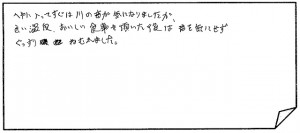 へやに入ってすぐは川の音が気になりましたが、
良い温泉、おいしい食事を頂いた後は音を気にせず
ぐっすりねむれました。